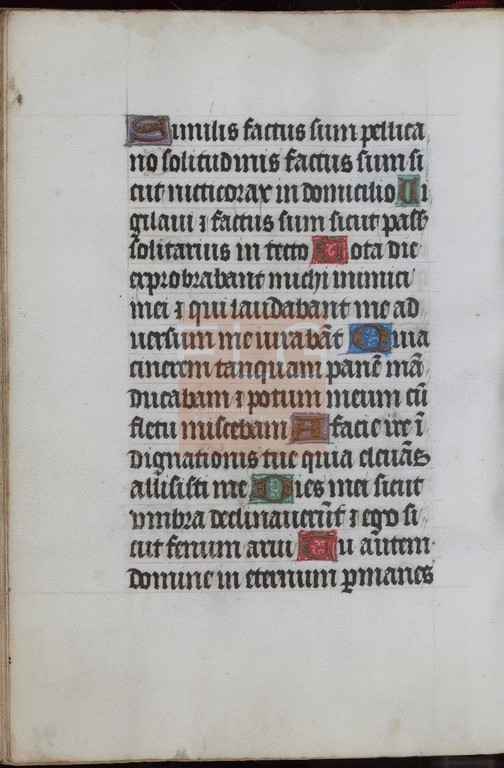 Similis factus sum pellica
no solitudinis factus sum si
cut nicticorax in domicilio Ui
gilaui ⁊ factus sum sicut pass̄
solitarius in tecto Tota die
exprobrabant michi inimici
mei ⁊ qui laudabant me ad
uersum me iurabāt Quia
cinerem tanquam panē mā
ducabam ⁊ potum meum cū
fletu miscebam A facie ire ī
dignationis tue quia eleuās
allisisti me Dies mei sicut
vmbra declinauerūt ⁊ ego si
cut fenum arui Tu autem
domine in eternum ꝑmanes